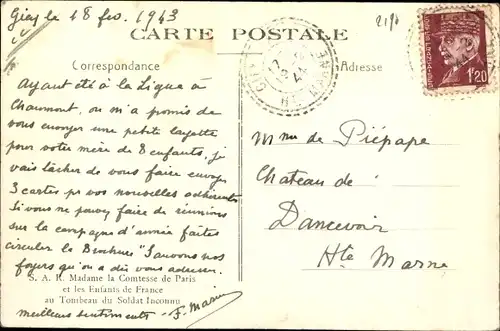 Giey le 18 fév. 1943
CARTE POSTALE
Correspondance
Adresse
1f20
HTE MARNE
Ayant été à la Ligue à
Chaumont, on m'a promis de
vous envoyer une petite layette
pour votre mère de 8 enfants, je
vais tâcher de vous faire envoyer
3 cartes pr vos nouvelles adhérents
Si vous ne pouvez faire de réunions
sur la campagne d'année faites
circuler la Brochure "Sauvons nos
foyers" qu'on a dû vous adresser.
S. A. R. Madame la Comtesse de Paris
et les Enfants de France
au Tombeau du Soldat Inconnu
meilleurs sentiments - F. Marin
Mme de Piépape
Chateau de
Dancevoir
Hte Marne